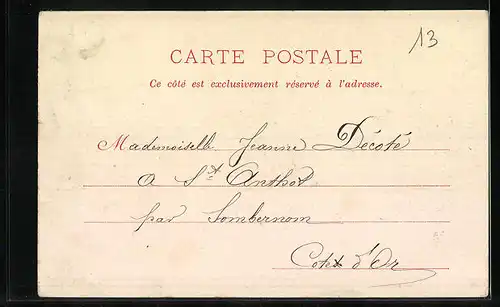 13
CARTE POSTALE
Ce côté est exclusivement réservé à l'adresse.
Mademoiselle Jeanne Décoté
a St Anthot
par Sombernom
Cote d'Or